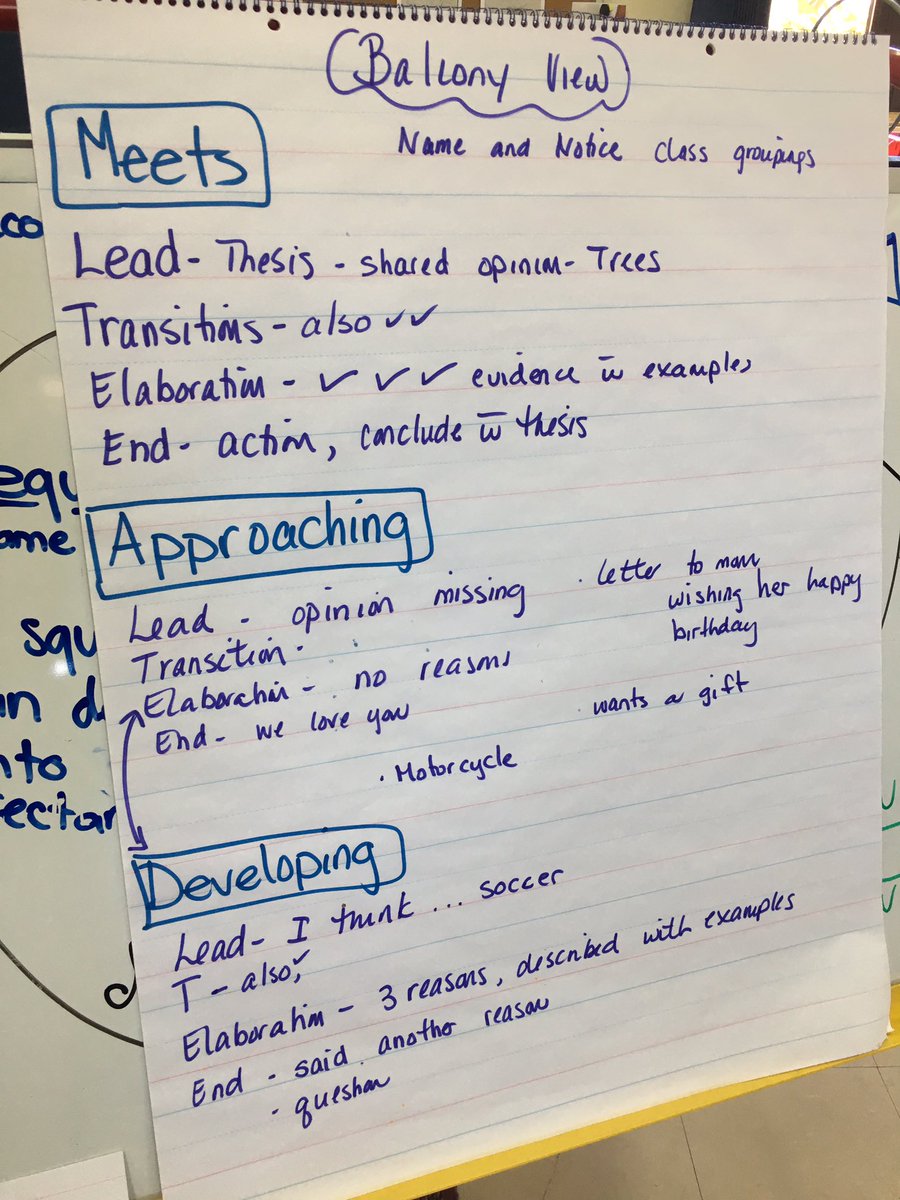 Balcony View
Name and Notice class groupings
Meets
Lead - Thesis - shared opinion - Trees
Transitions - also ✓✓
Elaboration - ✓ ✓ ✓ evidence w̅ examples
End - action, conclude w̅ thesis
Approaching
Lead - opinion missing
· letter to mom
wishing her happy
birthday
Transition -
Elaboration - no reasons
End - we love you
· wants a gift
· Motorcycle
Developing
Lead - I think ... soccer
T - also, ✓
Elaboration - 3 reasons, described with examples
End - said another reason
- question
co
equ
ame
squ
in d
nto
ectar